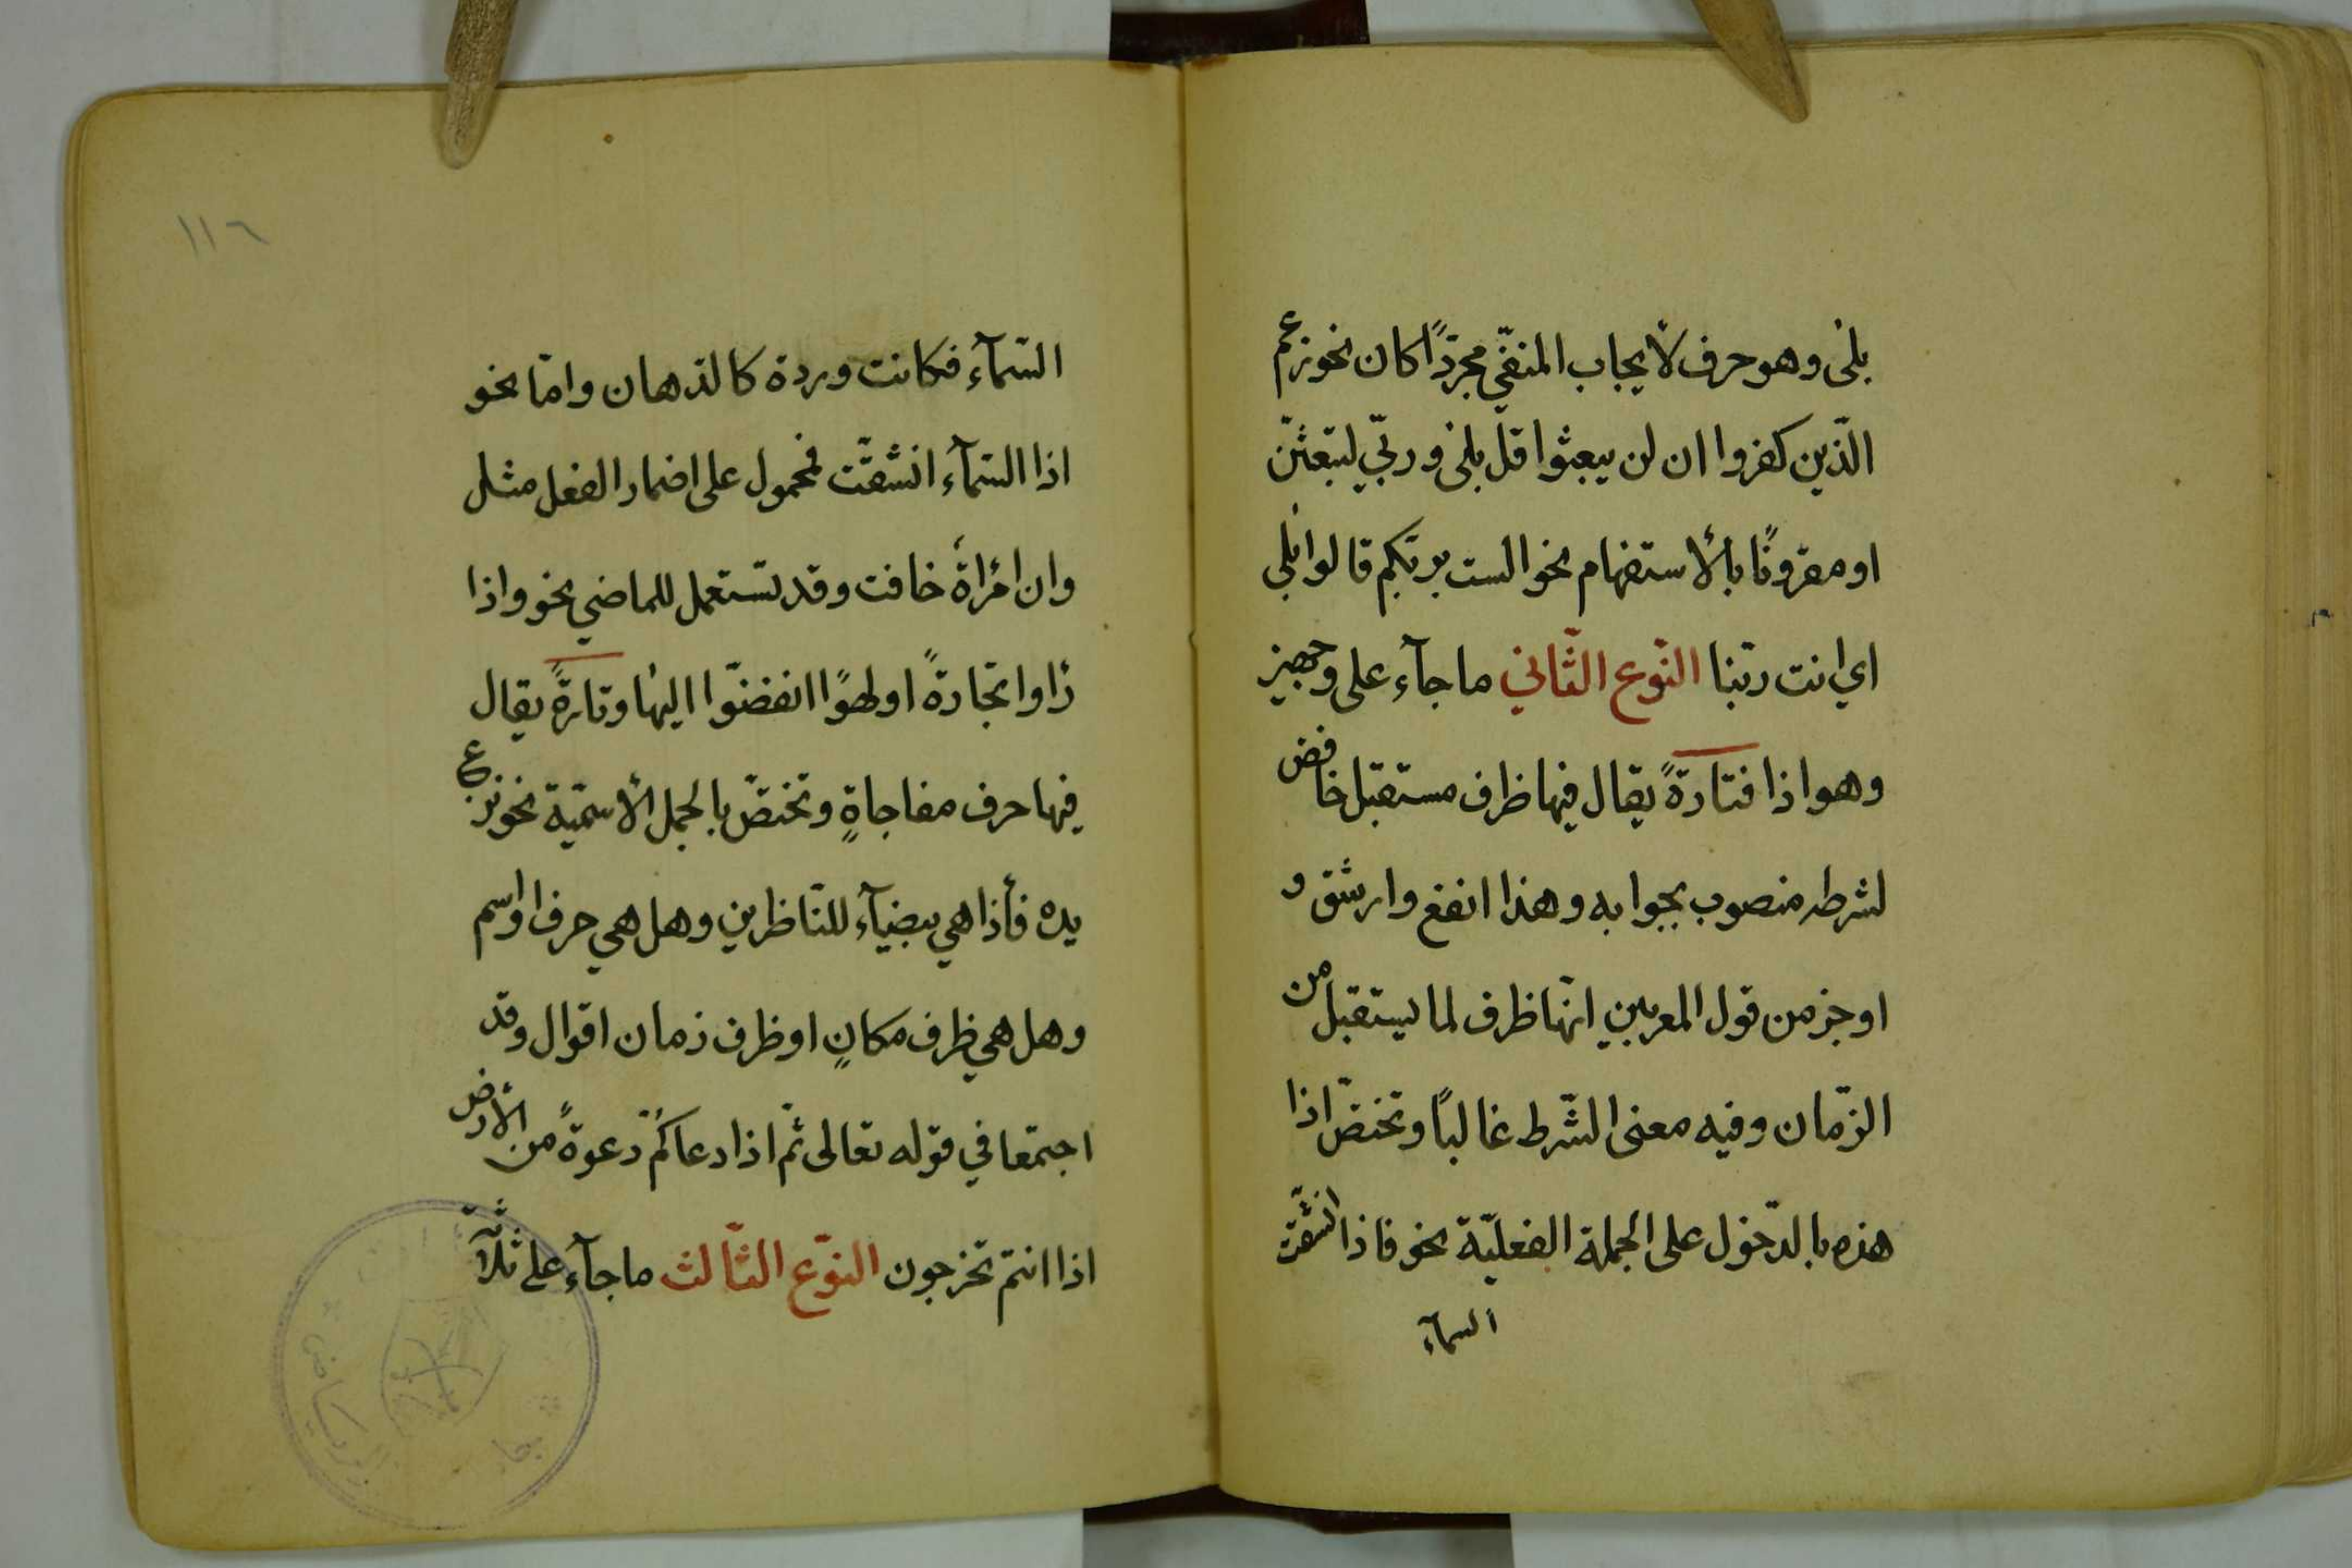 بلى وهو حرف لأيجاب المنفّي مجرّدًا كان نحو زعم
الّذين كفروا ان لن يبعثوا قل بلى وربّي لتبعثنّ
او مقرونًا بالأستفهام نحو الست بربّكم قالوا بلى
اي انت ربّنا النّوع الثّاني ماجآء على وجهين
وهو اذا فتارةً يقال فيها ظرف مستقبل خافض
لشرطه منصوب بجوابه وهذا انفع وارشق و
اوجز من قول المعربين انّها ظرف لما يستقبل من
الزّمان وفيه معنى الشّرط غالبًا وتختصّ اذا
هذه بالدّخول على الجملة الفعليّة نحو فاذا انشقّت
السمآء
١١٦
السّمآء فكانت وردة كالدّهان وامّا نحو
اذا السّمآء انشقّت فمحمول على اضمار الفعل مثل
وان امرأة خافت وقد تستعمل للماضي نحو واذا
رأوا تجارةً او لهوًا انفضّوا اليها وتارةً يقال
فيها حرف مفاجاةٍ وتختصّ بالجمل الأسميّة نحو نزع
يده فأذا هي بيضآء للنّاظرين وهل هي حرف او اسم
وهل هي ظرف مكانٍ او ظرف زمان اقوال وقد
اجتمعا في قوله تعالى ثمّ اذا دعاكم دعوةً من الأرض
اذا انتم تخرجون النّوع الثّالث ماجآء على ثلآثة
الرياض